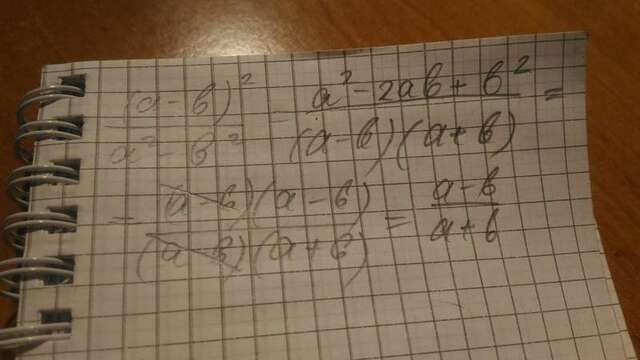 (a-b)²/(a²-b²) = (a²-2ab+b²)/((a-b)(a+b)) =
= ((a-b)(a-b))/((a-b)(a+b)) = (a-b)/(a+b)